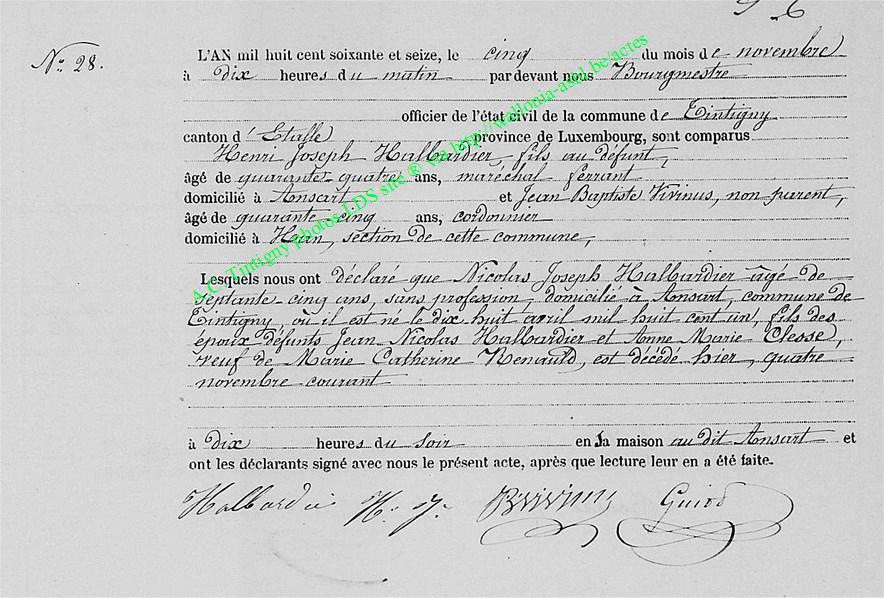 N° 28.
L'AN mil huit cent soixante et seize, le cinq du mois de novembre
à dix heures du matin par devant nous Bourgmestre
officier de l'état civil de la commune de Tintigny
canton d'Etalle province de Luxembourg, sont comparus
Henri Joseph Halbardier, fils au défunt,
âgé de quarante-quatre ans, maréchal ferrant
domicilié à Ansart et Jean Baptiste Vivinus, non parent,
âgé de quarante-cinq ans, cordonnier
domicilié à Han, section de cette commune,
Lesquels nous ont déclaré que Nicolas Joseph Halbardier âgé de
septante cinq ans, sans profession, domicilié à Ansart, commune de
Tintigny, où il est né le dix-huit avril mil huit cent un, fils des
époux défunts Jean Nicolas Halbardier et Anne Marie Clesse,
veuf de Marie Catherine Renauld, est décédé hier, quatre
novembre courant
à dix heures du soir en sa maison au dit Ansart et
ont les déclarants signé avec nous le présent acte, après que lecture leur en a été faite.
Halbardier H. J. BVivinus
A.C. Tintigny photos LDS site ® via http://wallonia-asbl.be/actes